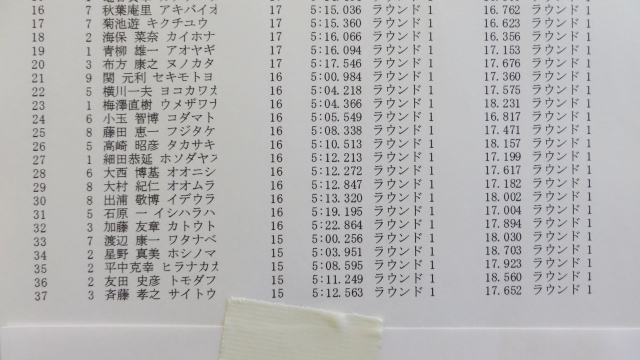 16 7 秋葉庵里 アキバイオ 17 5:15.036 ラウンド 1 16.762 ラウンド 1
17 7 菊池遊 キクチユウ 17 5:15.360 ラウンド 1 16.623 ラウンド 1
18 2 海保 菜奈 カイホナ 17 5:16.066 ラウンド 1 16.356 ラウンド 1
19 1 青柳 雄一 アオヤギ 17 5:16.094 ラウンド 1 17.153 ラウンド 1
20 3 布方 康之 ヌノカタ 17 5:17.546 ラウンド 1 17.676 ラウンド 1
21 9 関 元利 セキモトヨ 16 5:00.984 ラウンド 1 17.360 ラウンド 1
22 5 横川一夫 ヨコカワカ 16 5:04.218 ラウンド 1 17.575 ラウンド 1
23 1 梅澤直樹 ウメザワナ 16 5:04.366 ラウンド 1 18.231 ラウンド 1
24 6 小玉 智博 コダマト 16 5:05.549 ラウンド 1 16.817 ラウンド 1
25 8 藤田 恵一 フジタケ 16 5:08.338 ラウンド 1 17.471 ラウンド 1
26 5 高崎 昭彦 タカサキ 16 5:10.513 ラウンド 1 18.157 ラウンド 1
27 1 細田恭延 ホソダヤス 16 5:12.213 ラウンド 1 17.199 ラウンド 1
28 6 大西 博基 オオニシ 16 5:12.272 ラウンド 1 17.617 ラウンド 1
29 8 大村 紀仁 オオムラ 16 5:12.847 ラウンド 1 17.182 ラウンド 1
30 8 出浦 敬博 イデウラ 16 5:13.320 ラウンド 1 18.002 ラウンド 1
31 5 石原 一 イシハラハ 16 5:19.195 ラウンド 1 17.004 ラウンド 1
32 3 加藤 友章 カトウト 16 5:22.864 ラウンド 1 17.894 ラウンド 1
33 7 渡辺 康一 ワタナベ 15 5:00.256 ラウンド 1 18.030 ラウンド 1
34 2 星野 真美 ホシノマ 15 5:03.951 ラウンド 1 18.703 ラウンド 1
35 2 平中克幸 ヒラナカカ 15 5:08.595 ラウンド 1 17.923 ラウンド 1
36 2 友田 史彦 トモダフ 15 5:11.249 ラウンド 1 18.560 ラウンド 1
37 3 斉藤 孝之 サイトウ 15 5:12.563 ラウンド 1 17.652 ラウンド 1